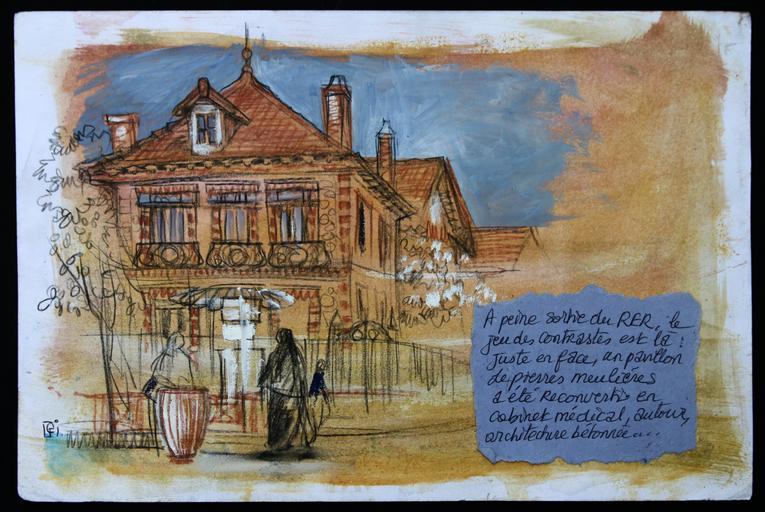 A peine sortie du RER, le
jeu des contrastes est là :
juste en face, un pavillon
de pierres meulières
a été reconverti en
cabinet médical, autour,
architecture bétonnée....